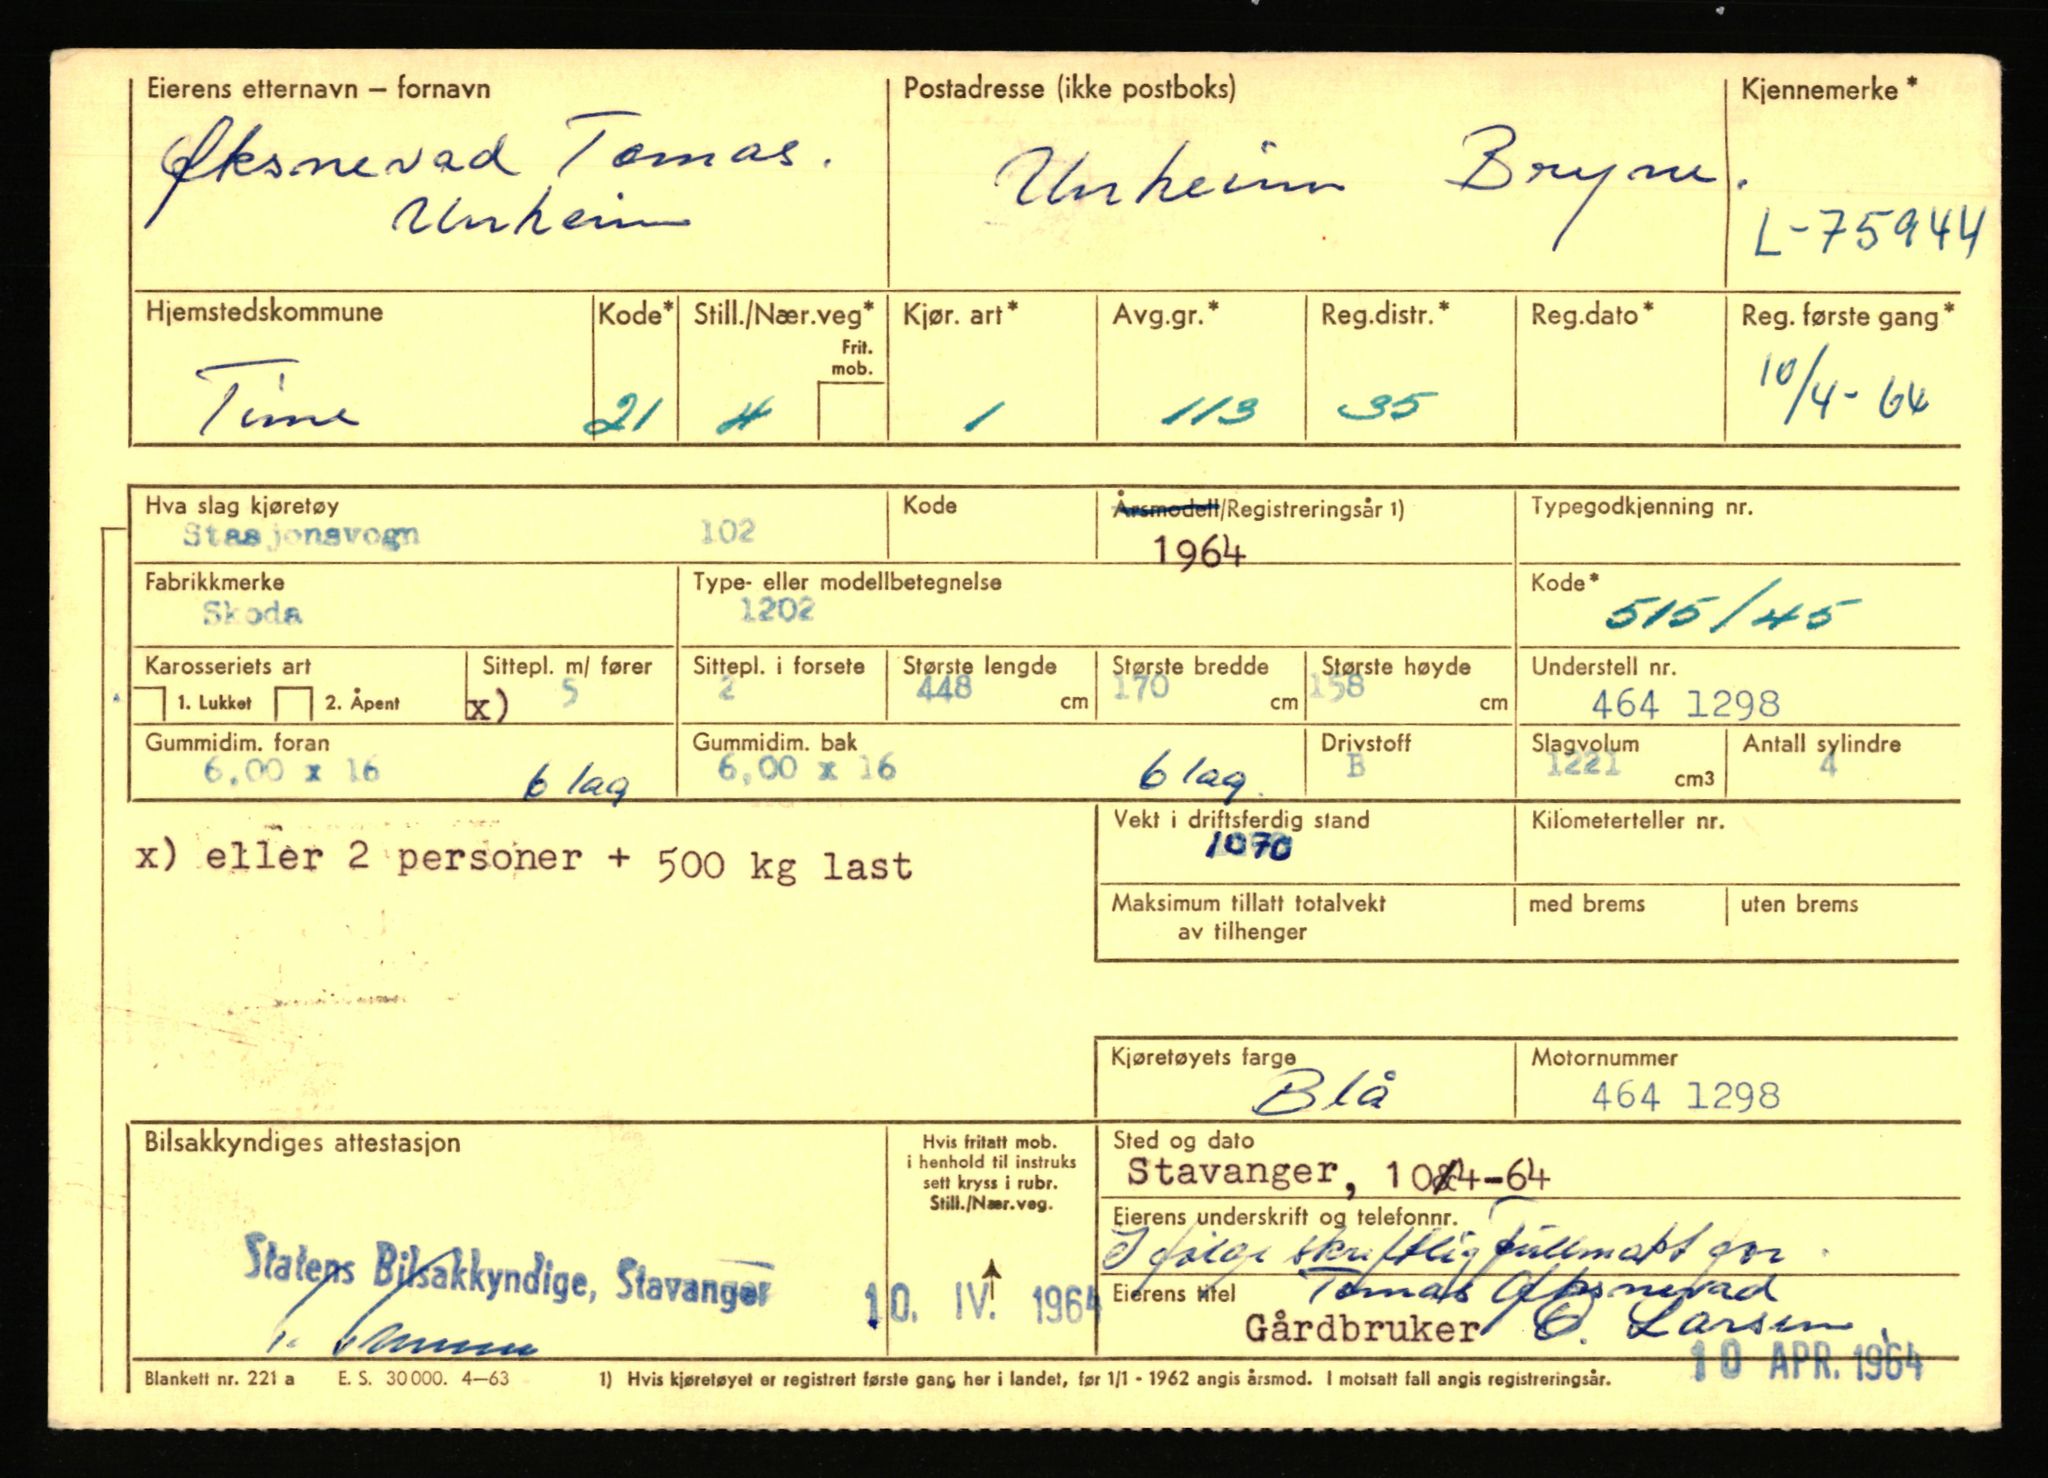 Eierens etternavn – fornavn
Postadresse (ikke postboks)
Kjennemerke*
Øksnevad Tomas.
Unheim
Unheim Bryne.
L-75944
Hjemstedskommune
Kode*
Still./Nær.veg*
Frit. mob.
Kjør. art*
Avg.gr.*
Reg.distr.*
Reg.dato*
Reg. første gang*
Time
21
4
1
113
35
10/4-64
Hva slag kjøretøy
Kode
Årsmodell/Registreringsår 1)
Typegodkjenning nr.
Stasjonsvogn 102
1964
Fabrikkmerke
Type- eller modellbetegnelse
Kode*
Skoda
1202
515/45
Karosseriets art
Sittepl. m/ fører
Sittepl. i forsete
Største lengde
Største bredde
Største høyde
Understell nr.
1. Lukket
2. Åpent
x) 5
2
448 cm
170 cm
158 cm
464 1298
Gummidim. foran
Gummidim. bak
Drivstoff
Slagvolum
Antall sylindre
6,00 x 16 6 lag
6,00 x 16 6 lag.
B
1221 cm3
4
x) eller 2 personer + 500 kg last
Vekt i driftsferdig stand
Kilometerteller nr.
1070
Maksimum tillatt totalvekt
av tilhenger
med brems
uten brems
Kjøretøyets farge
Motornummer
Blå
464 1298
Bilsakkyndiges attestasjon
Hvis fritatt mob.
i henhold til instruks
sett kryss i rubr.
Still./Nær.veg.
Sted og dato
Stavanger, 10/4-64
Eierens underskrift og telefonnr.
I følge skriftlig fullmakt for
Statens Bilsakkyndige, Stavanger
10. IV. 1964
Eierens titel
Tomas Øksnevad
Gårdbruker
O. Larsen
10 APR. 1964
Blankett nr. 221 a E. S. 30 000. 4–63
1) Hvis kjøretøyet er registrert første gang her i landet, før 1/1 - 1962 angis årsmod. I motsatt fall angis registreringsår.